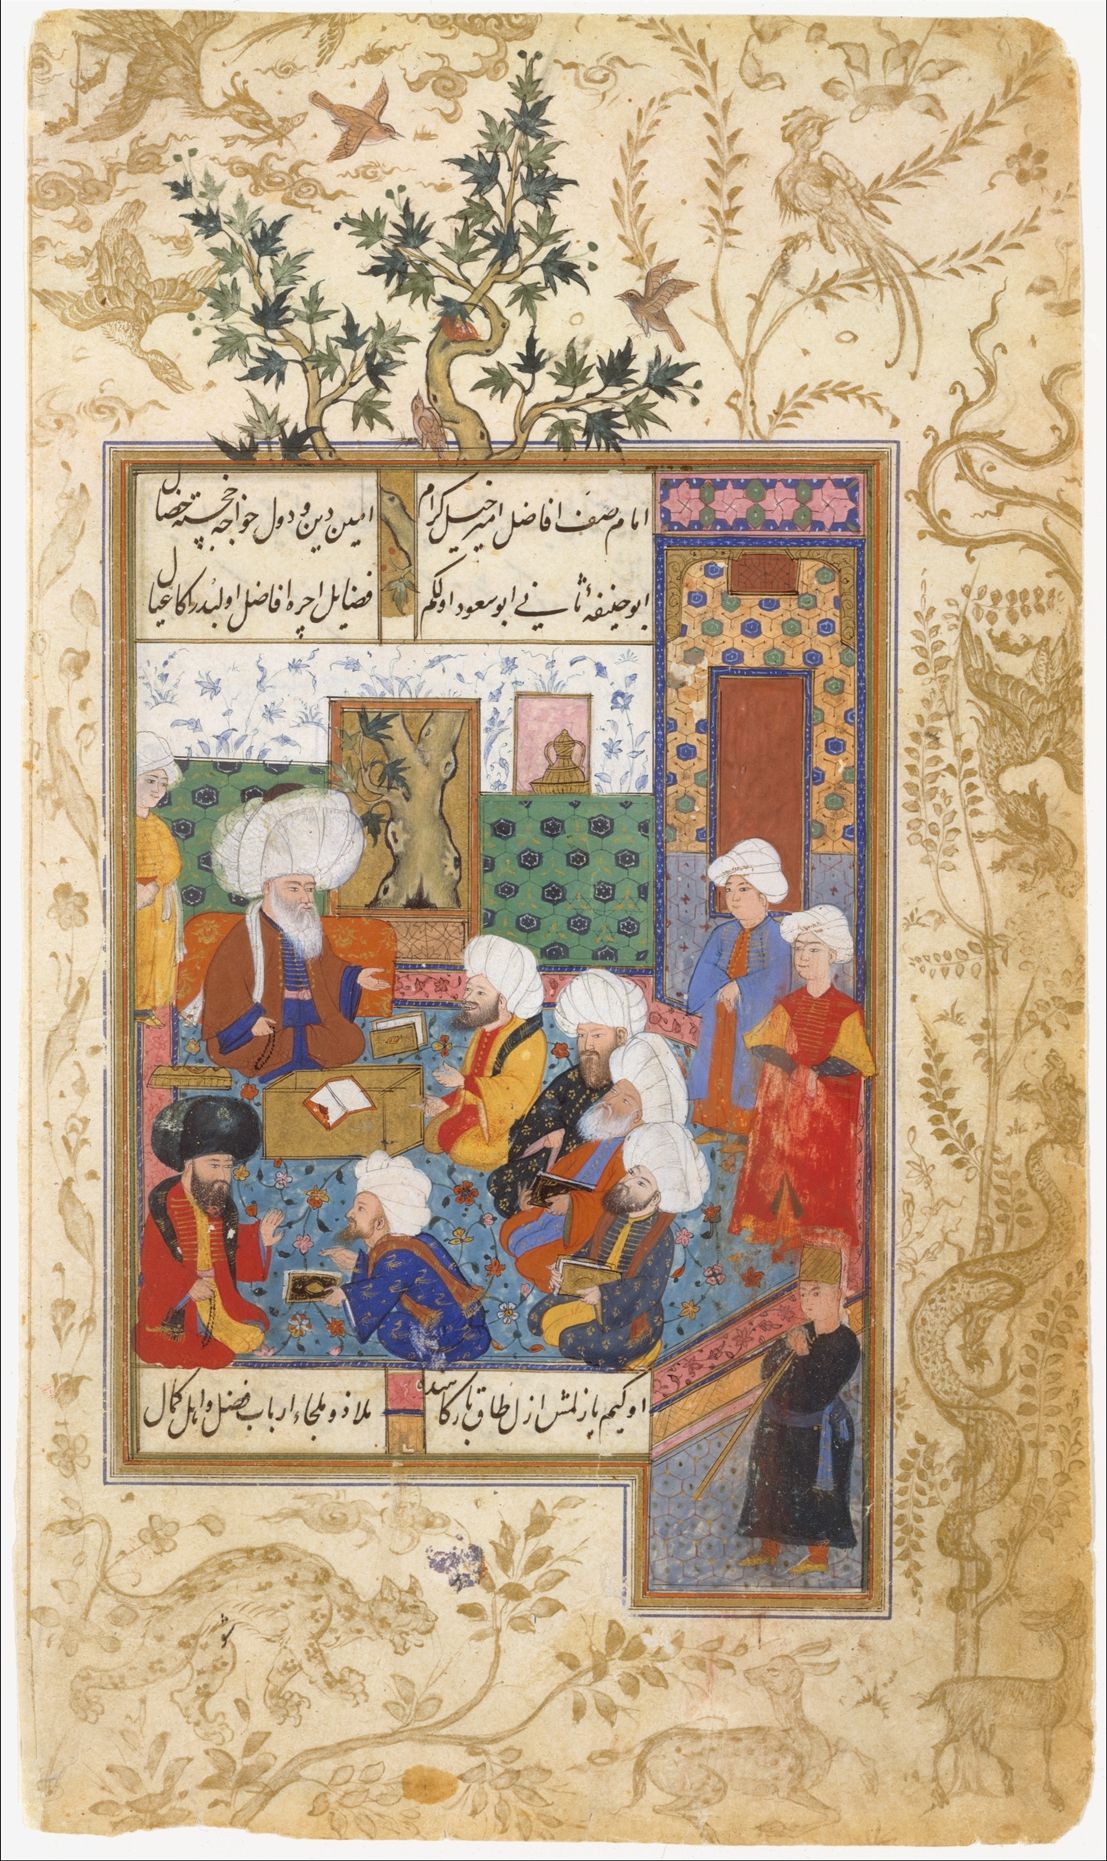 امام صنف افاضل امیر خیل کرام
امین دین و دول خواجه خجسته خصال
ابو حنیفهٔ ثانی ابو سعود اولکم
فضایل اجره افاضل اولبدر اکا عیال
اوکیم یازلمش ازل طاق بارکاهنده
ملاذ و ملجاء ارباب فضل و اهل کمال